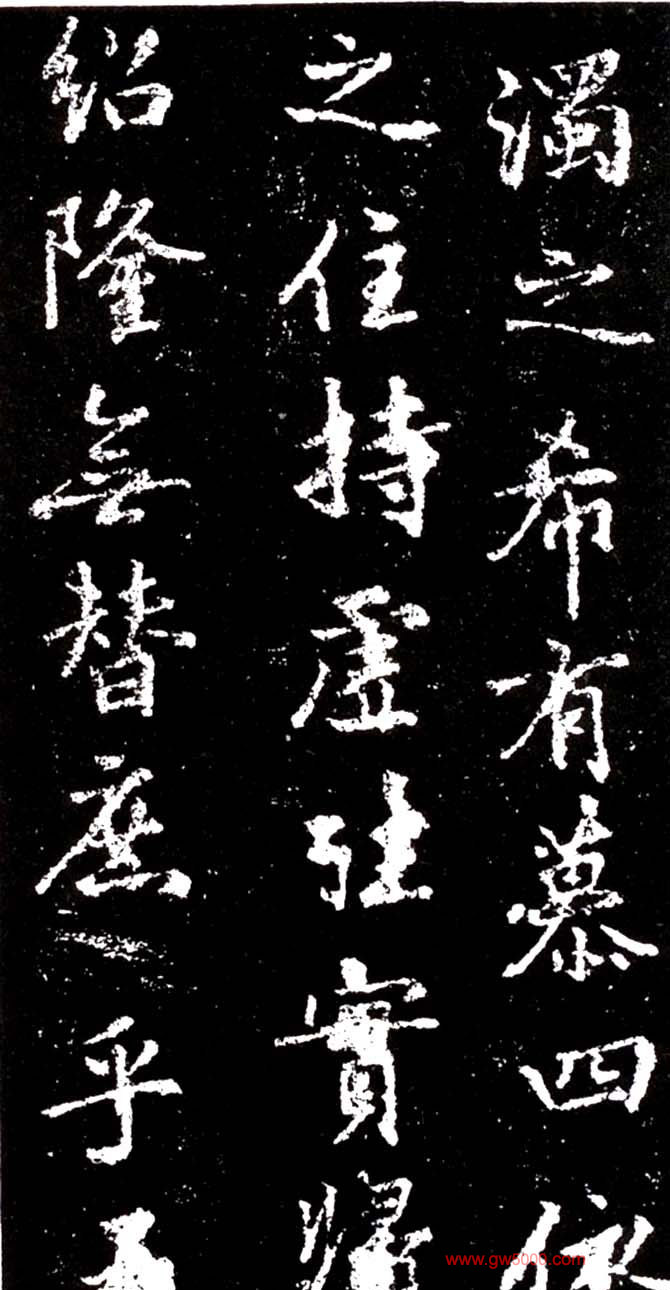 濁之希有慕四依
之住持虛往實歸
紹隆無替庶乎
www.gw5000.com